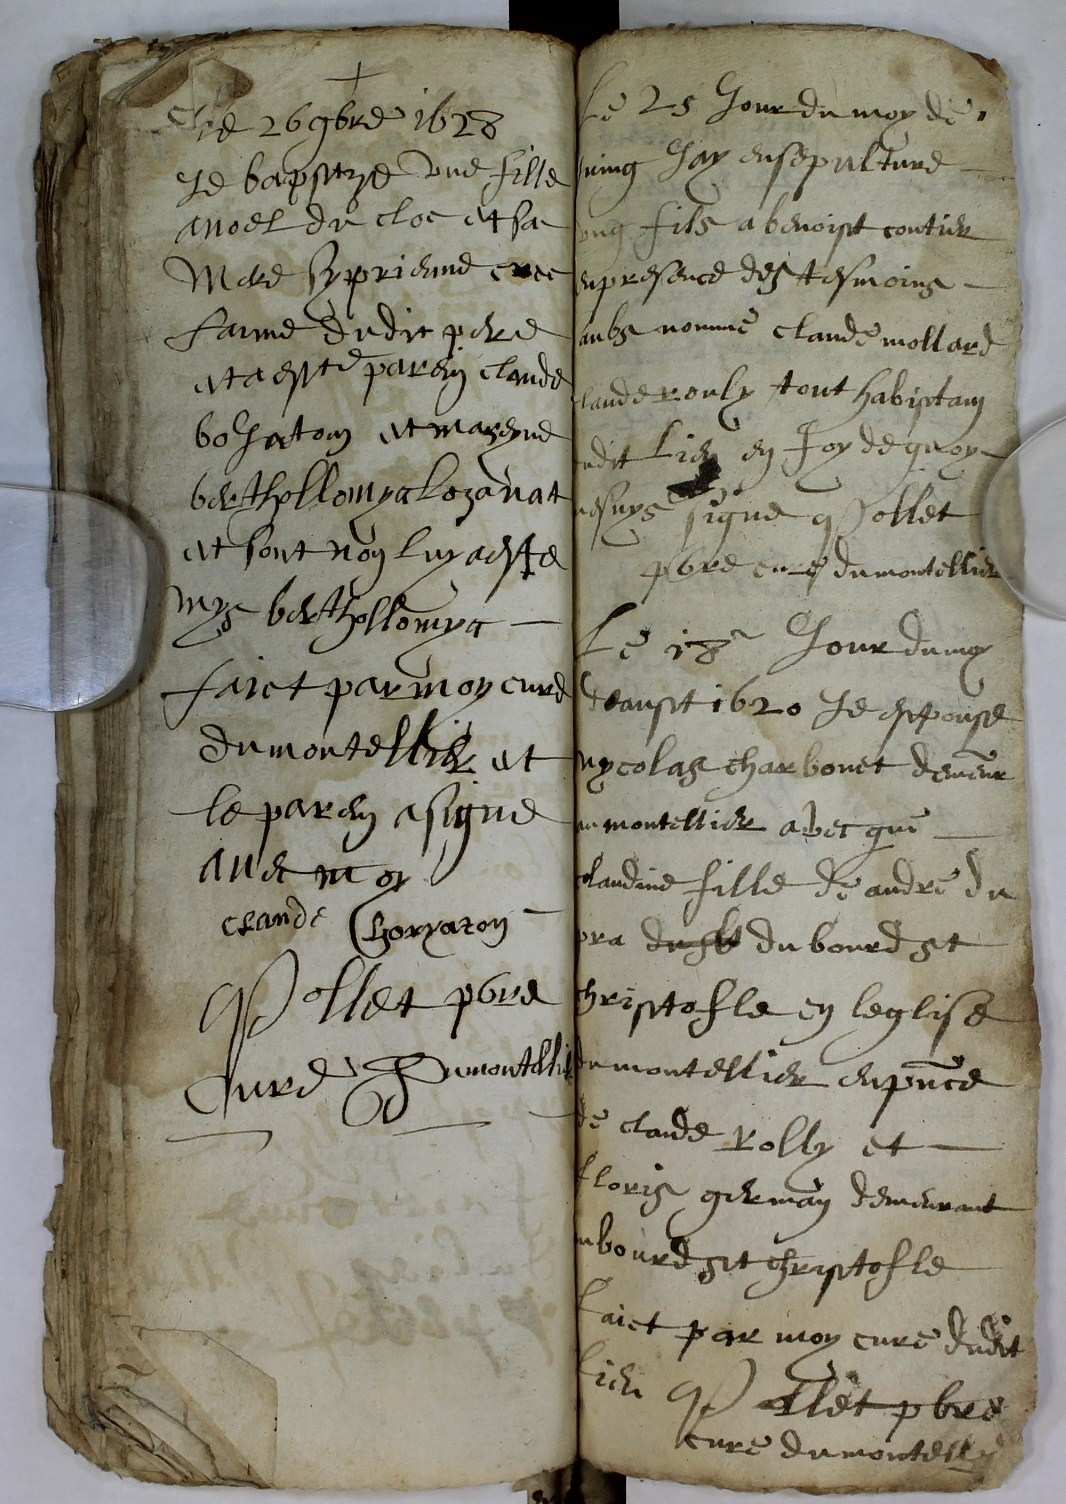 Le 26 9bre 1628
Je baptizé une fille
a noel du cloc et sa
Mere sypriemme
famme dudit pere
et a esté parein claude
et mareyne
berthollomya Lozanat
et sont nom luy a esté
mys berthollomya
faict par moy curé
du montellier et
le parein a signé
avec moy
claude
P ollet pbre
curé Du montellier
Le 25 Jour du moy de
Juing Jay ensepulturé
ung fils a benoist contier
en presence des tesmoins
soubs nommé claude mollard
claude rouly tout habistam
dudit lieu en foy de quoy
me suys signé P ollet
pbre curé du montellier
Le 18 Jour du moy
deaust 1620 Je espousé
nycolas charbonet demeur
au montellier avec que
claudine fille de andré du
pra du bourd st
christofle en leglise
du montellier en pnce
de claude Rolly et
floris germain demeurant
au bourd st christofle
faict par moy curé dudit
lieu P ollet pbre
curé du montellier